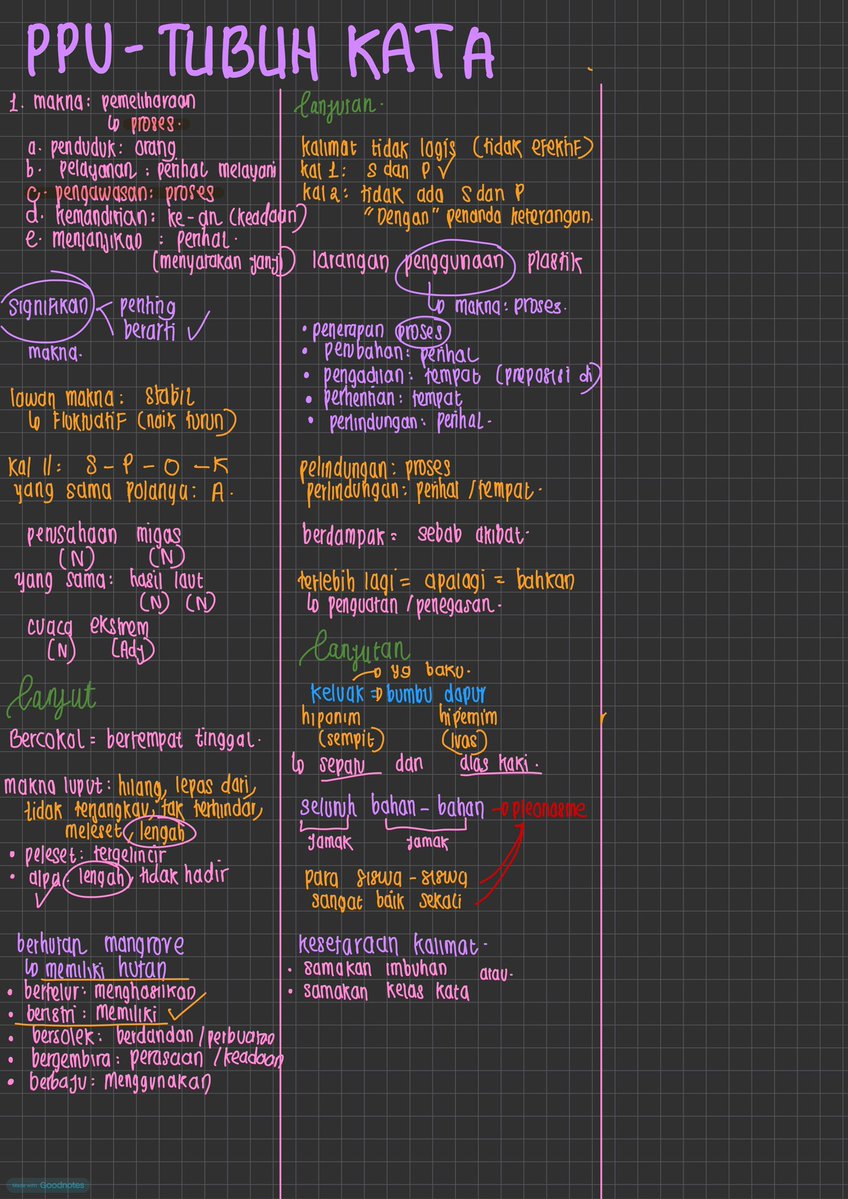 PPU - TUBUH KATA
1. makna: pemeliharaan
↳ proses.
a. penduduk: orang
b. pelayanan: perihal melayani
c. pengawasan: proses
d. kemandirian: ke-an (keadaan)
e. menjanjikan: perihal.
(menyatakan janji)
signifikan
penting
berarti ✓
makna.
lawan makna: stabil
↳ fluktuatif (naik turun)
kal 11: S - P - O - K
yang sama polanya: A.
perusahaan migas
(N) (N)
yang sama: hasil laut
(N) (N)
cuaca ekstrem
(N) (Adj)
Lanjut
Bercokol = bertempat tinggal.
makna luput: hilang, lepas dari,
tidak terjangkau, tak terhindar,
meleset, lengah
• peleset: tergelincir
• alpa: lengah, tidak hadir
✓
berhutan mangrove
↳ memiliki hutan
• bertelur: menghasilkan
• beristri: memiliki ✓
• bersolek: berdandan/perbuatan
• bergembira: perasaan/keadaan
• berbaju: menggunakan
Lanjutan.
kalimat tidak logis (tidak efektif)
kal 1: S dan P ✓
kal 2: tidak ada S dan P
"Dengan" penanda keterangan.
larangan penggunaan plastik
↳ makna: proses.
• penerapan proses
• perubahan: perihal
• pengadilan: tempat (preposisi di)
• perhentian: tempat
• perlindungan: perihal.
pelindungan: proses
perlindungan: perihal/tempat.
berdampak = sebab akibat.
terlebih lagi = apalagi = bahkan
↳ penguatan/penegasan.
Lanjutan
→ yg baku.
keluak ⇒ bumbu dapur
hiponim hipernim
(sempit) (luas)
↳ sepatu dan alas kaki.
seluruh bahan-bahan → pleonasme
jamak jamak
para siswa-siswa
sangat baik sekali
kesetaraan kalimat.
• samakan imbuhan atau.
• samakan kelas kata
Made with Goodnotes